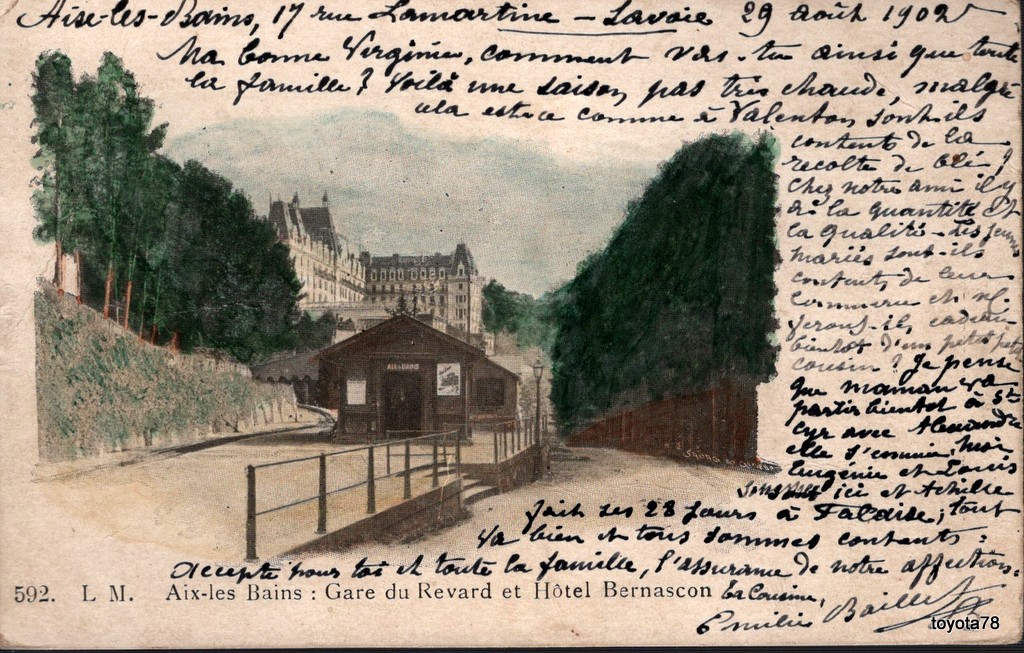 Aix-les-Bains, 17 rue Lamartine - Savoie 29 août 1902
Ma bonne Virginie, comment vas-tu ainsi que toute
la famille? Voilà une saison pas très chaude, malgré
cela est-ce comme à Valenton, sont-ils
contents de la
recolte de blé?
Chez notre ami il y
a la quantité et
la qualité. Les jeunes
mariés sont-ils
contents de leur
commerce et ns
feront-ils, cadeau
bientôt d'un petit
cousin? Je pense
que maman va
partir bientot à St
Cyr avec Alexandre
elle s'ennuie,
Eugénie et Louis
sont ici et Achille
fait ses 28 jours à Falaise, tout
va bien et tous sommes contents:
accepte pour toi et toute la famille, l'assurance de notre affection.
592. L M. Aix-les Bains : Gare du Revard et Hôtel Bernascon
ta Cousine,
Emilie Baillet
AIX-LES-BAINS
toyota78